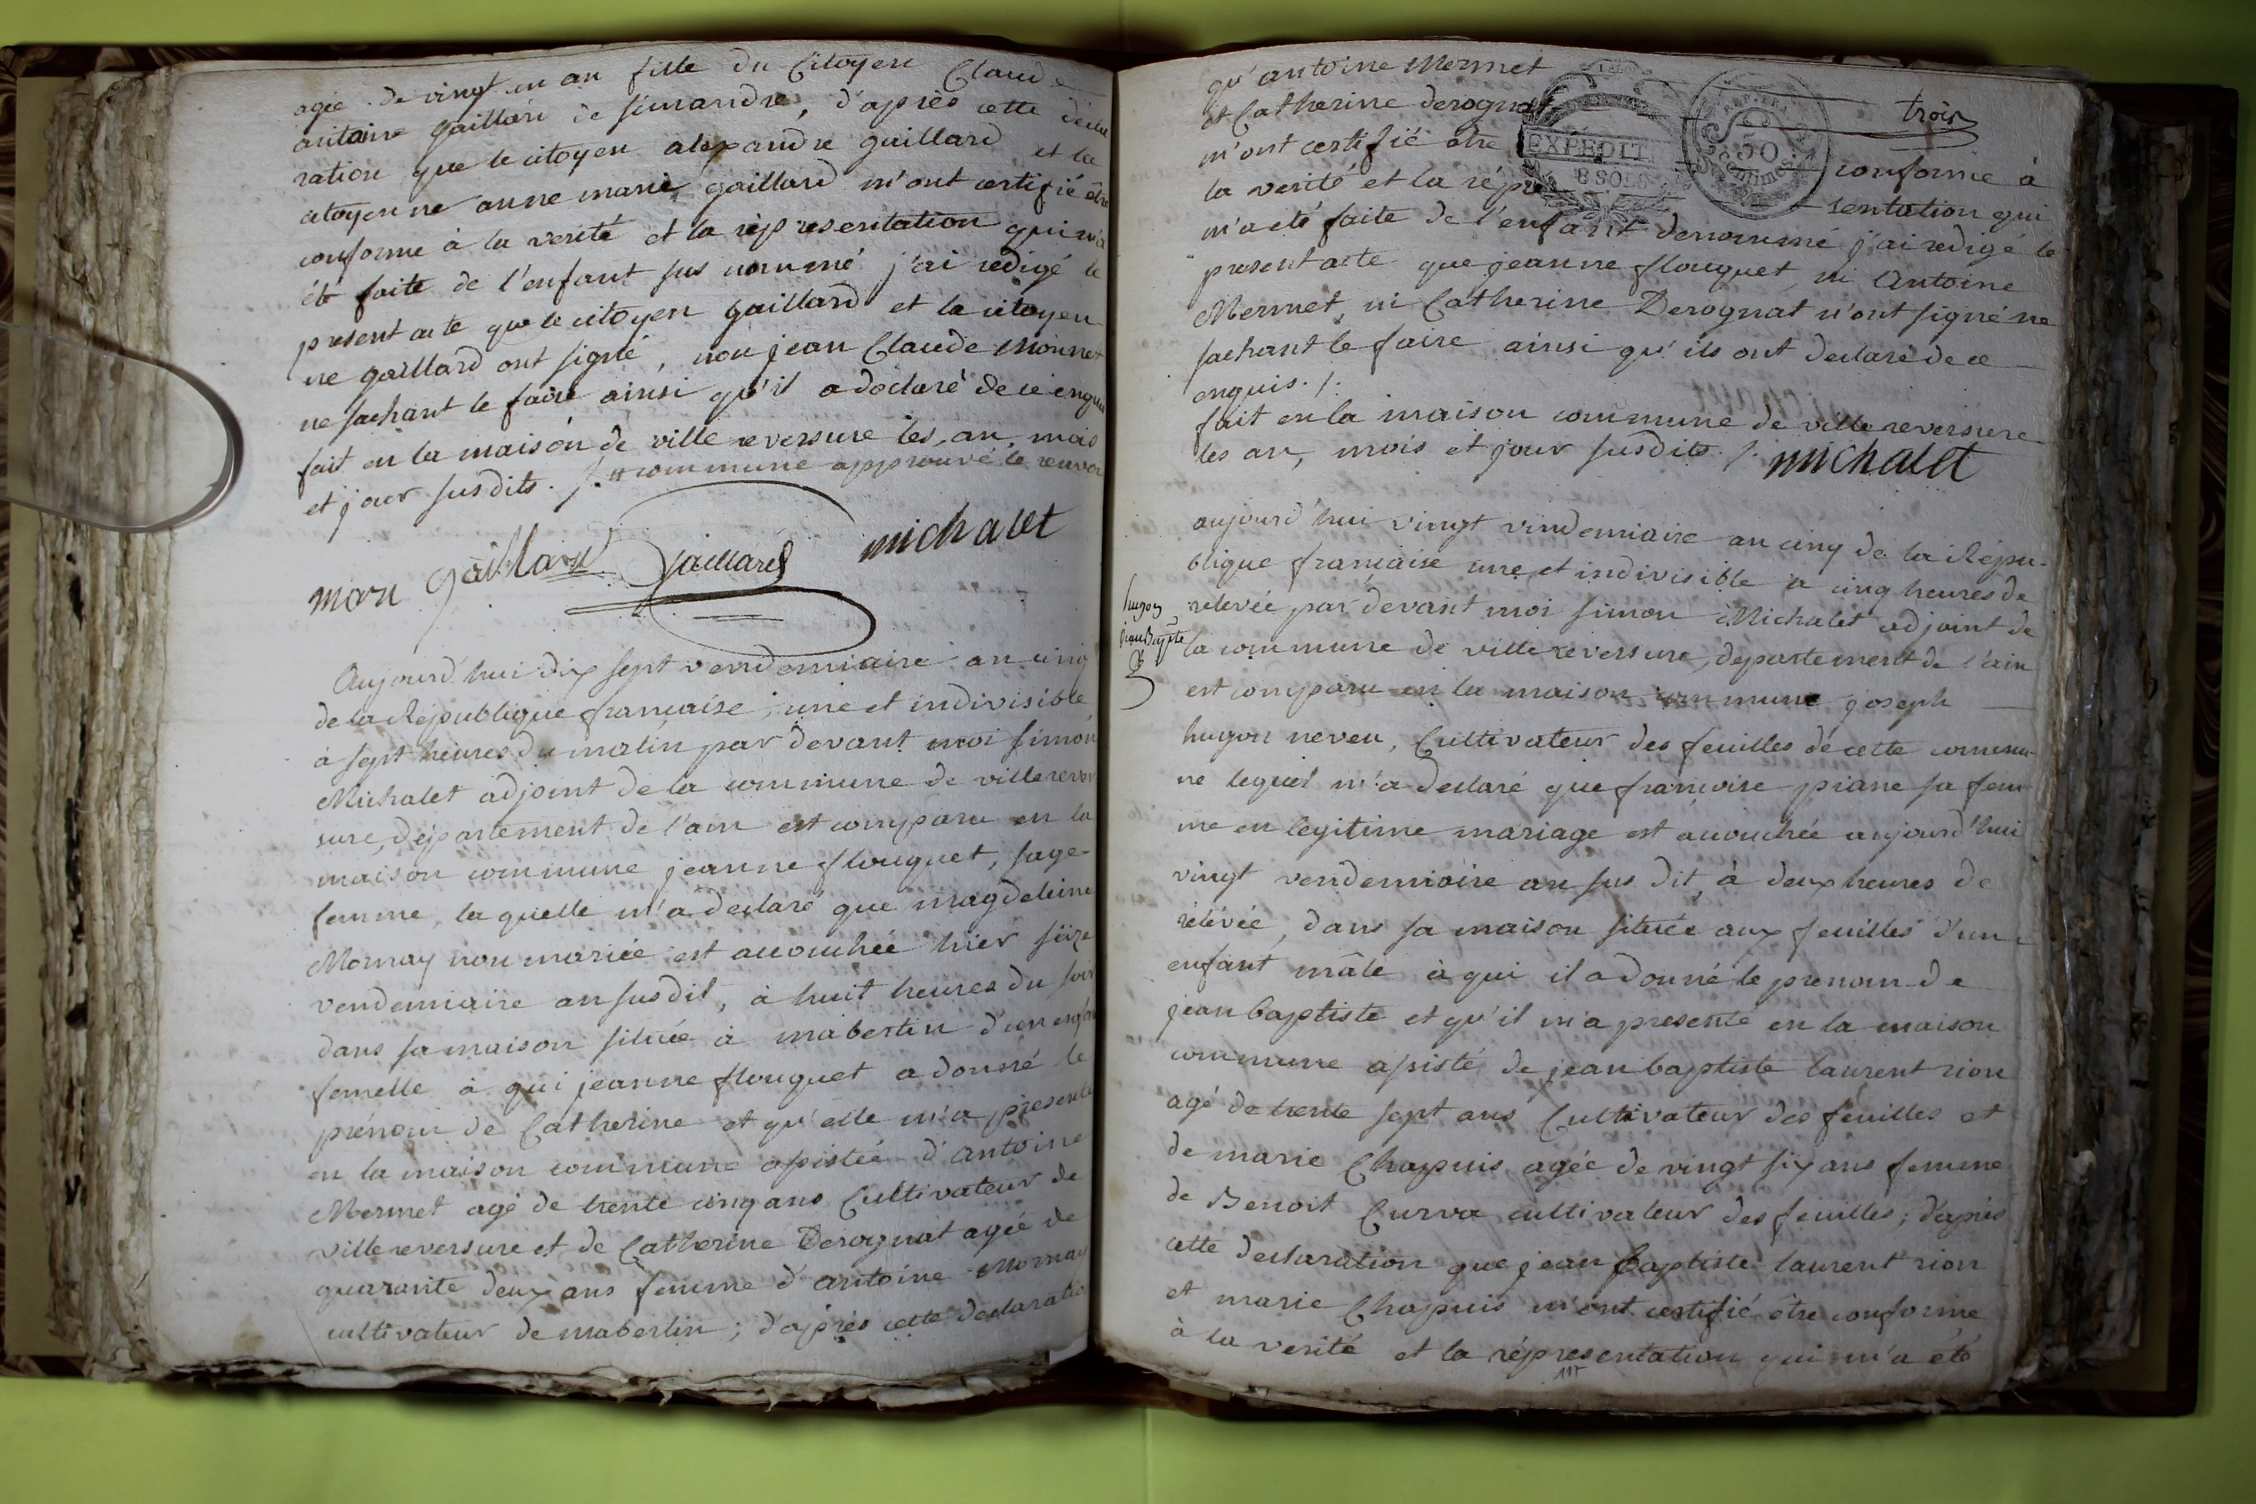 agée de vingt un an fille du Citoyen Claude
antoine gaillard de simandre, d'après cette décla
ration que le citoyen alexandre gaillard et la
citoyenne anne marie gaillard m'ont certifié être
conforme à la verité et la représentation qui m'a
été faite de l'enfant sus nommé j'ai redigé le
present acte que le citoyen gaillard et la citoyen
ne gaillard ont signé, non jean Claude Monnet
ne sachant le faire ainsi qu'il a declaré de ce enquis
fait en la maison de ville reversure les an, mois
et jour susdits ./. # commune approuvé le renvoi
mari gaillard gaillard michalet
Aujourd'hui dix sept vendemiaire an cinq
de la République francaise, une et indivisible
à sept heures du matin par devant moi simon
Michalet adjoint de la commune de ville rever
sure, département de l'ain est comparu en la
maison commune jeanne flouquet, sage-
femme, la quelle m'a declaré que magdeleine
Mornay non mariée est accouchée hier seize
vendemiaire an susdit, à huit heures du soir
dans sa maison située à mabertin d'un enfan
femelle à qui jeanne flouquet a donné le
prénom de Catherine et qu'elle m'a presenté
en la maison commune assistée d'antoine
Mermet agé de trente cinq ans Cultivateur de
ville reversure et de Catherine Derognat agée de
quarante deux ans femme d'antoine Mornay
cultivateur de mabertin; d'après cette declaratio
qu'antoine Mermet
et Catherine derognat
trois
EXPEDIT
8 SOLS
50
centimes
m'ont certifié être conforme à
la verité et la répre sentation qui
m'a eté faite de l'enfant denommé j'ai redigé le
present acte que jeanne flouquet, ni Antoine
Mermet, ni Catherine Derognat n'ont signé ne
sachant le faire ainsi qu'ils ont declaré de ce
enquis ./.
fait en la maison commune de ville reversure
les an, mois et jour susdits ./. michalet
aujourd'hui vingt vendemiaire an cinq de la Répu-
blique francaise une et indivisible à cinq heures de
hugon
jean Bapte
relevée par devant moi simon Michalet adjoint de
la commune de ville reversure, departement de l'ain
est comparu en la maison commune joseph
hugon neveu, Cultivateur des feuilles de cette commu-
ne lequel m'a declaré que francoise piane sa fem
me en legitime mariage est accouchée aujourd'hui
vingt vendemiaire an sus dit, à deux heures de
rélévée, dans sa maison située aux feuilles d'un
enfant mâle à qui il a donné le prenom de
jean baptiste et qu'il m'a presenté en la maison
commune assisté de jean baptiste laurent rion
agé de trente sept ans Cultivateur des feuilles et
de marie Chapuis agée de vingt six ans femme
de Benoit Curva cultivateur des feuilles; d'après
cette declaration que jean baptiste laurent rion
et marie Chapuis m'ont certifié être conforme
à la verité et la réprésentation qui m'a été